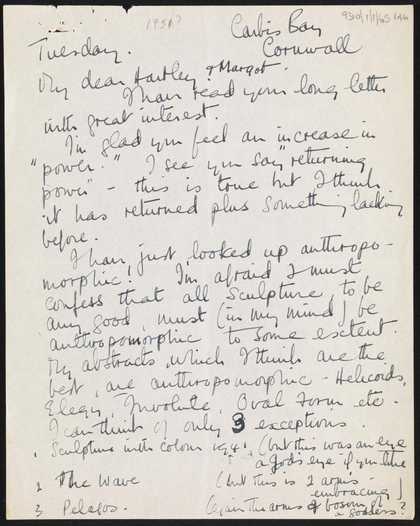 1951?
9310/1/1/65
Carbis Bay
Cornwall
Tuesday.
My dear Hartley & Margot.
I have read your long letter
with great interest.
I'm glad you feel an increase in
"power." I see you say "returning
power" - this is true but I think
it has returned plus something lacking
before.
I have just looked up anthropo-
morphic! I'm afraid I must
confess that all sculpture, to be
any good, must (in my mind) be
anthropomorphic to some extent.
My abstracts, which I think are the
best, are anthropomorphic - Helicoids,
Elegy, Involute, Oval Form etc.
I can think of only 3 exceptions.
1 Sculpture with colour 1941 (but this was an eye
a gods eye if you like
2 The Wave (but this is 2 arms -
embracing)
3 Pelagos. (again the arms & bosom of
a goddess?